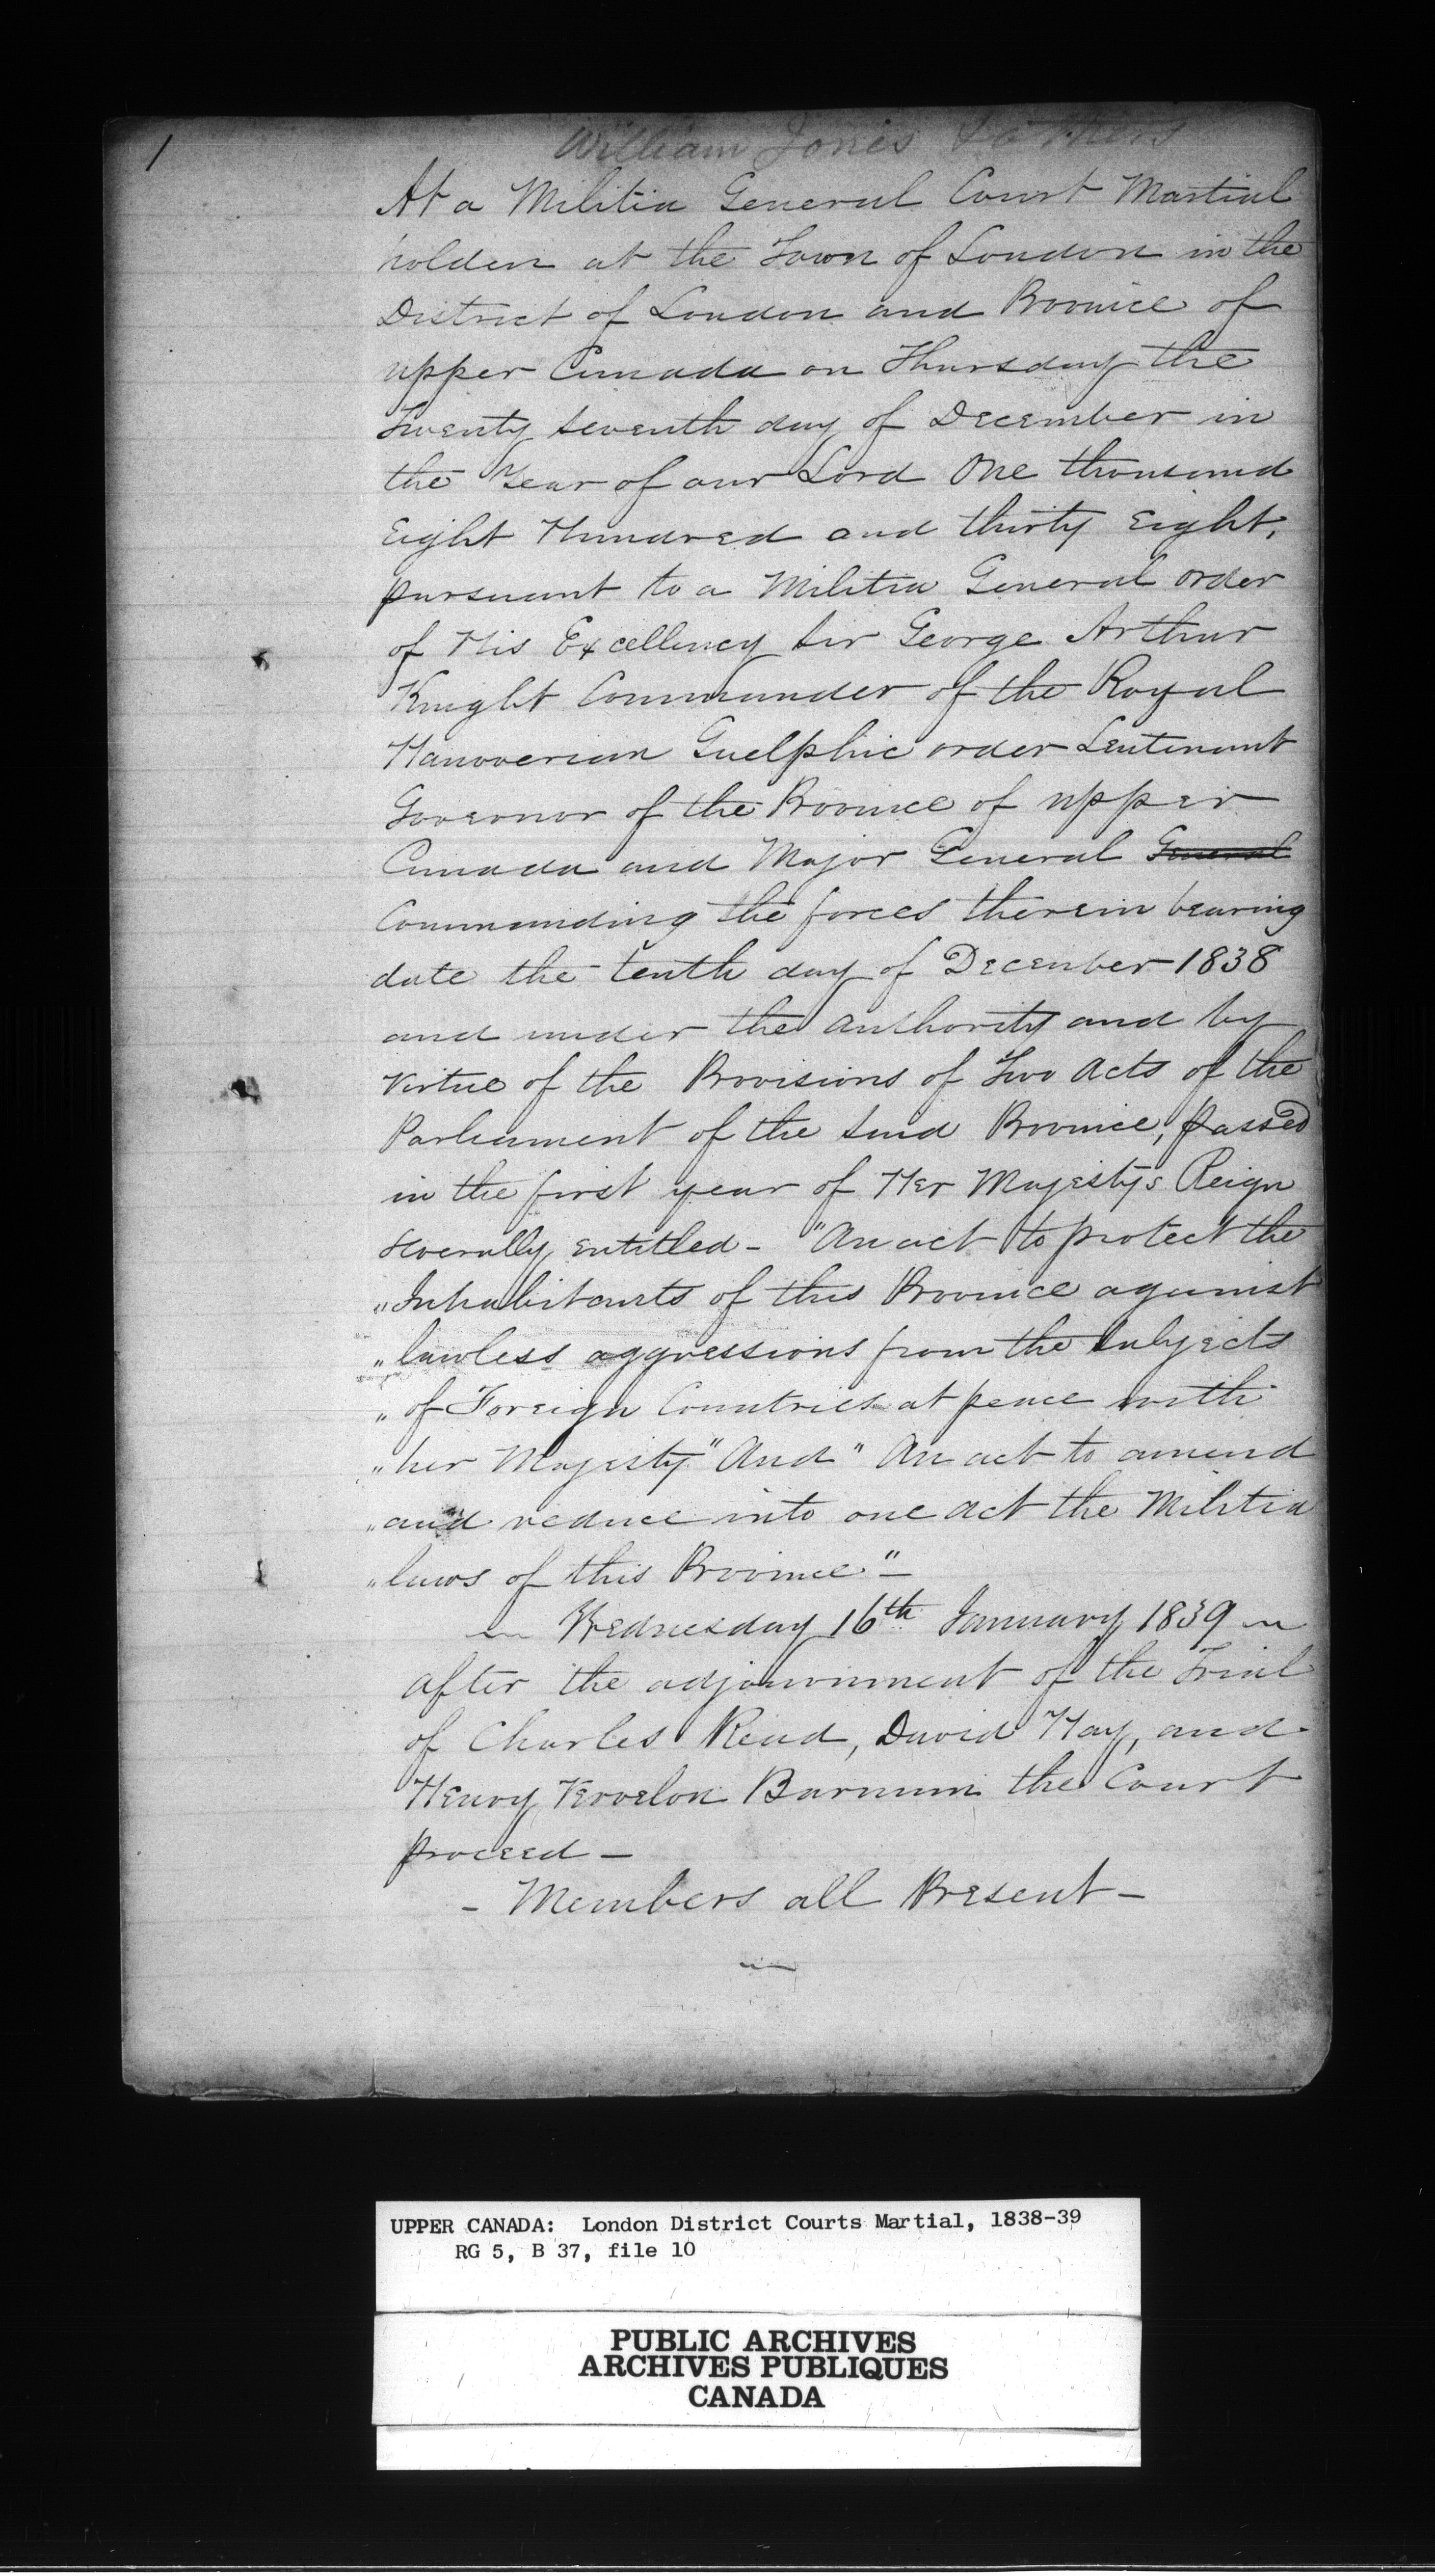 1
William Jones & others
At a Militia General Court Martial
holden at the Town of London in the
District of London and Province of
upper Canada on Thursday the
Twenty seventh day of December in
the Year of our Lord One thousand
Eight Hundred and thirty Eight,
pursuant to a Militia General order
of His Excellency Sir George Arthur
Knight Commander of the Royal
Hanoverian Guelphic order Leutenant
Governor of the Province of upper
Canada and Major General General
Commanding the forces therein bearing
date the tenth day of December 1838
and under the authority and by
virtue of the Provisions of Two Acts of the
Parliament of the said Province, passed
in the first year of Her Majestys Reign
severally entitled - "An act to protect the
"Inhabitants of this Province against
"lawless aggressions from the subjects
"of Foreign Countries at peace with
"her Majesty" And "An act to amend
"and reduce into one act the Militia
"laws of this Province" -
Wednesday 16th January 1839
After the adjournment of the Trial
of Charles Read, David Hay, and
Henry Vervelon Barnum the Court
proceed -
- Members all Present -
UPPER CANADA: London District Courts Martial, 1838-39
RG 5, B 37, file 10
PUBLIC ARCHIVES
ARCHIVES PUBLIQUES
CANADA